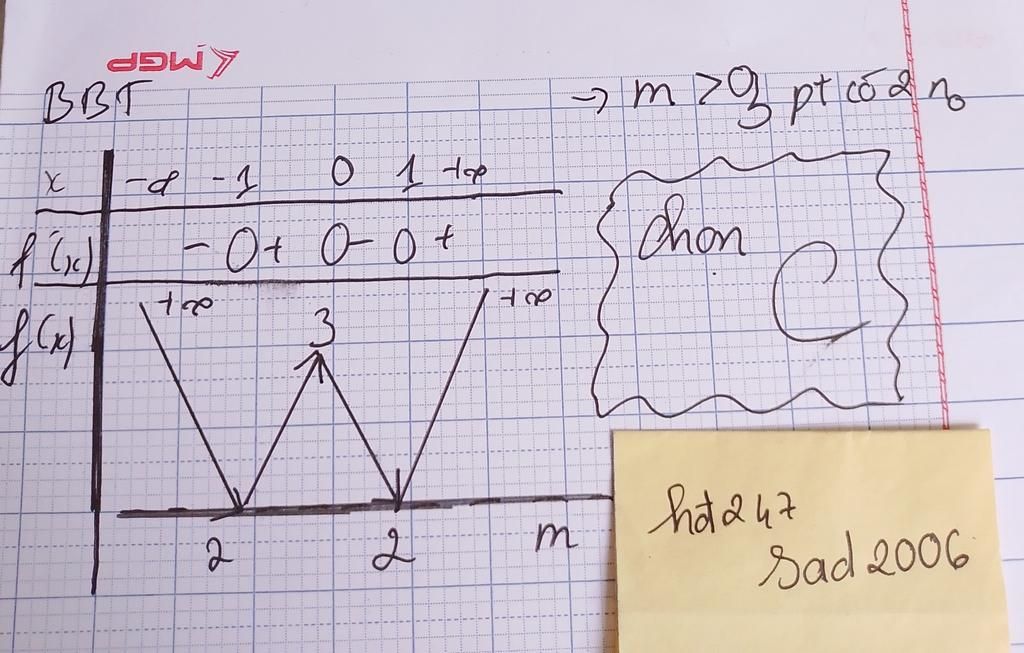 MGP
BBT
→ m > 3 pt có 2 no
x -∞ -1 0 1 +∞
f'(x) - 0 + 0 - 0 +
f(x) +∞ 3 +∞
2 2 m
Chọn
C
hdt247
sad2006